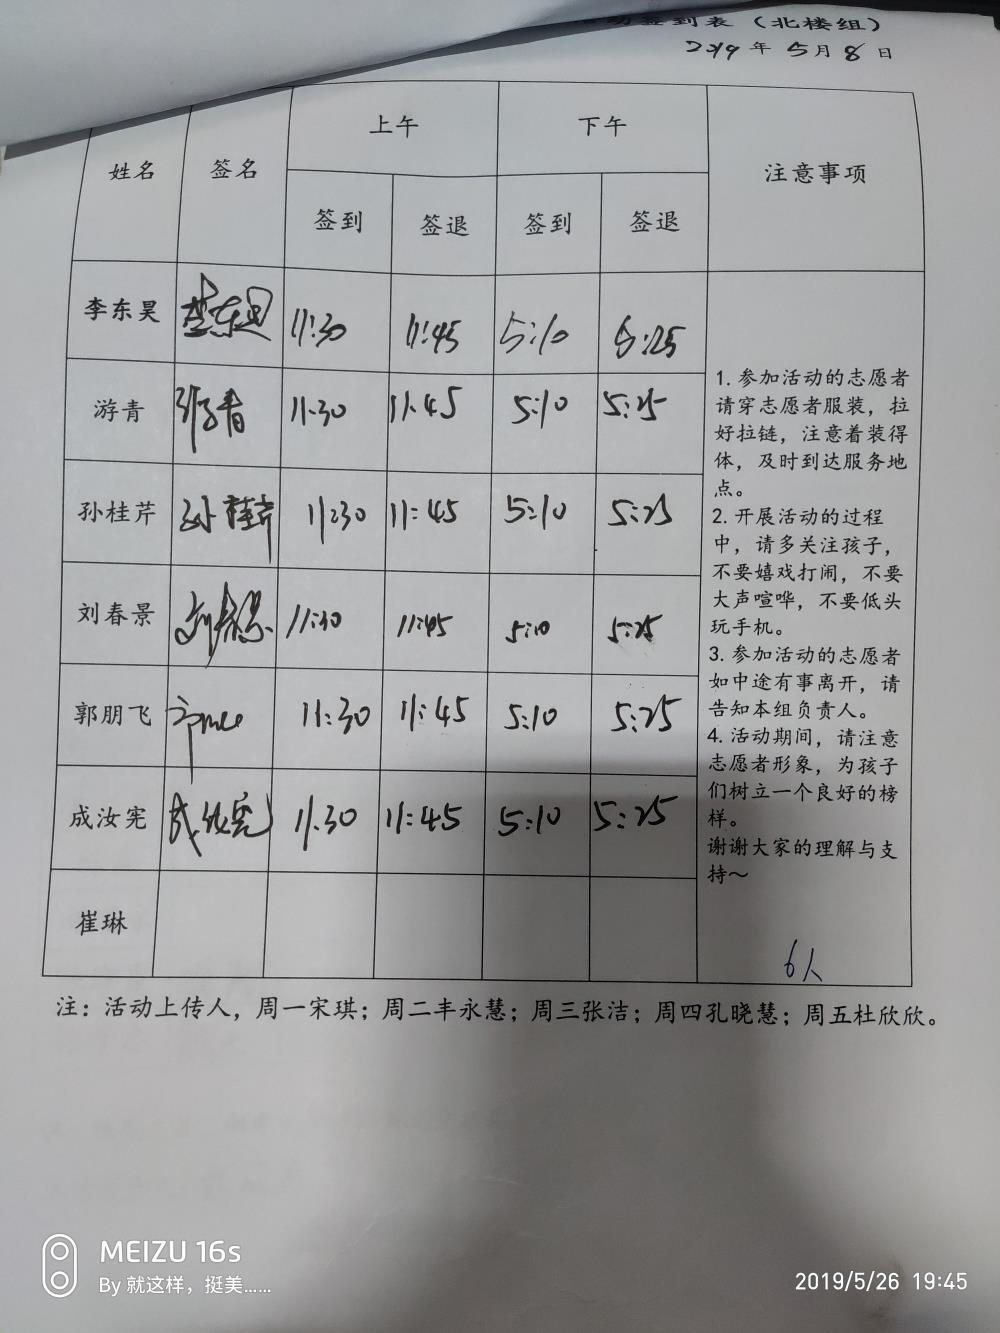 活动签到表（北楼组）
2019年5月8日
姓名 签名 上午 下午 注意事项
签到 签退 签到 签退
李东昊 李东昊 11:30 11:45 5:10 5:25
游青 游青 11:30 11:45 5:10 5:25
孙桂芹 孙桂芹 11:30 11:45 5:10 5:25
刘春景 刘春景 11:30 11:45 5:10 5:25
郭朋飞 11:30 11:45 5:10 5:25
成汝宪 成汝宪 11:30 11:45 5:10 5:25
崔琳
1.参加活动的志愿者
请穿志愿者服装，拉
好拉链，注意着装得
体，及时到达服务地
点。
2.开展活动的过程
中，请多关注孩子，
不要嬉戏打闹，不要
大声喧哗，不要低头
玩手机。
3.参加活动的志愿者
如中途有事离开，请
告知本组负责人。
4.活动期间，请注意
志愿者形象，为孩子
们树立一个良好的榜
样。
谢谢大家的理解与支
持～
6人
注：活动上传人，周一宋琪；周二丰永慧；周三张洁；周四孔晓慧；周五杜欣欣。
MEIZU 16s
By 就这样，挺美......
2019/5/26 19:45